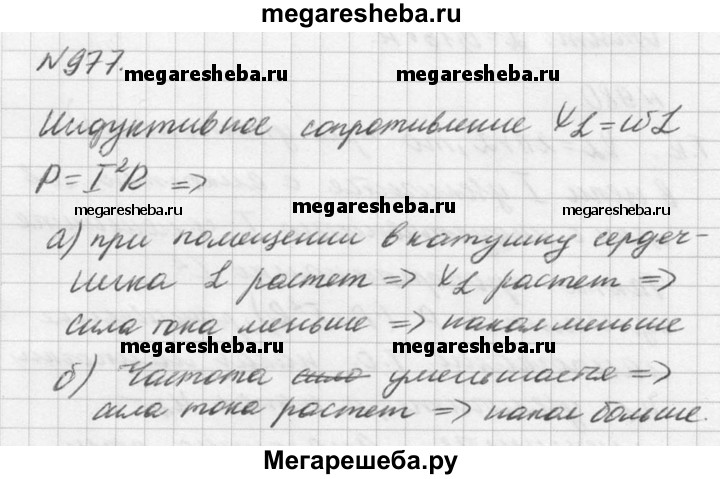 megaresheba.ru
№977.
megaresheba.ru megaresheba.ru
Индуктивное сопротивление XL=ωL
P=I²R =>
megaresheba.ru megaresheba.ru
а) при помещении в катушку сердеч-
ника L растет => XL растет =>
сила тока меньше => накал меньше
megaresheba.ru megaresheba.ru
б) Частота сила уменьшается =>
сила тока растет => накал больше.
Мегарешеба.ру